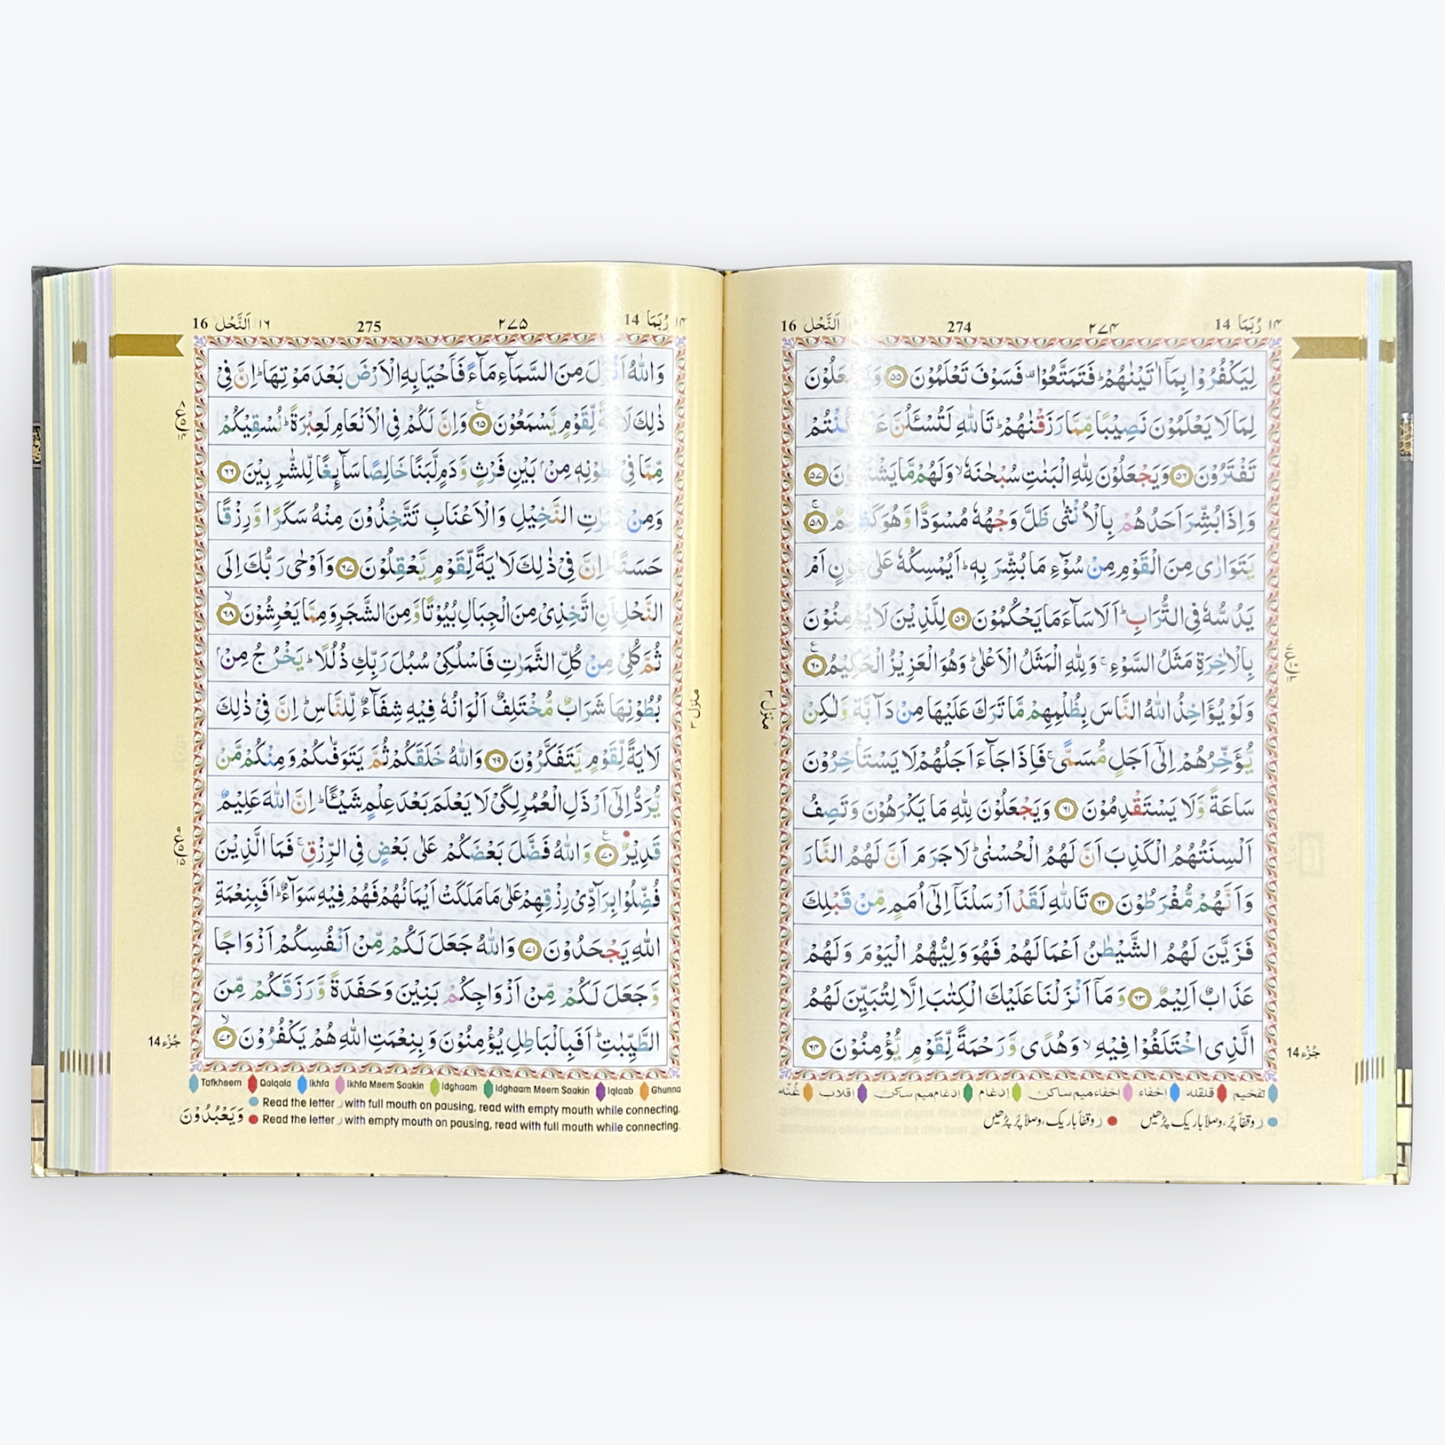 ١٤ رُبَمَا 14
٢٧٤
274
اَلنَّحْل 16
لِيَكْفُرُوْا بِمَاۤ اٰتَيْنٰهُمْ ؕ فَتَمَتَّعُوْا ۫ فَسَوْفَ تَعْلَمُوْنَ ۵۵
لِمَا لَا يَعْلَمُوْنَ نَصِيْبًا مِّمَّا رَزَقْنٰهُمْ ؕ تَاللّٰهِ لَتُسْئَلُنَّ كُنْتُمْ
تَفْتَرُوْنَ ۵۶ وَيَجْعَلُوْنَ لِلّٰهِ الْبَنٰتِ سُبْحٰنَهٗ ۙ وَلَهُمْ مَّا يَشْتَهُوْنَ ۵۷
وَاِذَا بُشِّرَ اَحَدُهُمْ بِالْاُنْثٰى ظَلَّ وَجْهُهٗ مُسْوَدًّا وَّهُوَ كَظِيْمٌ ۵۸
يَتَوَارٰى مِنَ الْقَوْمِ مِنْ سُوْٓءِ مَا بُشِّرَ بِهٖ ؕ اَيُمْسِكُهٗ عَلٰى هُوْنٍ اَمْ
يَدُسُّهٗ فِى التُّرَابِ ؕ اَلَا سَآءَ مَا يَحْكُمُوْنَ ۵۹ لِلَّذِيْنَ لَا يُؤْمِنُوْنَ
بِالْاٰخِرَةِ مَثَلُ السَّوْءِ ۚ وَلِلّٰهِ الْمَثَلُ الْاَعْلٰى ؕ وَهُوَ الْعَزِيْزُ الْحَكِيْمُ ۶۰
وَلَوْ يُؤَاخِذُ اللّٰهُ النَّاسَ بِظُلْمِهِمْ مَّا تَرَكَ عَلَيْهَا مِنْ دَآبَّةٍ وَّلٰكِنْ
يُّؤَخِّرُهُمْ اِلٰٓى اَجَلٍ مُّسَمًّى ۚ فَاِذَا جَآءَ اَجَلُهُمْ لَا يَسْتَاْخِرُوْنَ
سَاعَةً وَّلَا يَسْتَقْدِمُوْنَ ۶۱ وَيَجْعَلُوْنَ لِلّٰهِ مَا يَكْرَهُوْنَ وَتَصِفُ
اَلْسِنَتُهُمُ الْكَذِبَ اَنَّ لَهُمُ الْحُسْنٰى ؕ لَا جَرَمَ اَنَّ لَهُمُ النَّارَ
وَاَنَّهُمْ مُّفْرَطُوْنَ ۶۲ تَاللّٰهِ لَقَدْ اَرْسَلْنَاۤ اِلٰٓى اُمَمٍ مِّنْ قَبْلِكَ
فَزَيَّنَ لَهُمُ الشَّيْطٰنُ اَعْمَالَهُمْ فَهُوَ وَلِيُّهُمُ الْيَوْمَ وَلَهُمْ
عَذَابٌ اَلِيْمٌ ۶۳ وَمَاۤ اَنْزَلْنَا عَلَيْكَ الْكِتٰبَ اِلَّا لِتُبَيِّنَ لَهُمُ
الَّذِى اخْتَلَفُوْا فِيْهِ ۙ وَهُدًى وَّرَحْمَةً لِّقَوْمٍ يُّؤْمِنُوْنَ ۶۴
منزل ۳
جُزْء 14
تفخیم قلقله إخفاء إخفاء میم ساکن إدغام إدغام میم ساکن اقلاب غُنّه
ر وقفاً پُر، وصلاً باریک پڑھیں
ر وقفاً باریک، وصلاً پُر پڑھیں
١٤ رُبَمَا 14
٢٧٥
275
١٦ اَلنَّحْل 16
وَاللّٰهُ اَنْزَلَ مِنَ السَّمَآءِ مَآءً فَاَحْيَا بِهِ الْاَرْضَ بَعْدَ مَوْتِهَا ؕ اِنَّ فِىْ
ذٰلِكَ لَاٰيَةً لِّقَوْمٍ يَّسْمَعُوْنَ ۶۵ وَاِنَّ لَكُمْ فِى الْاَنْعَامِ لَعِبْرَةً ؕ نُسْقِيْكُمْ
مِّمَّا فِىْ بُطُوْنِهٖ مِنْۢ بَيْنِ فَرْثٍ وَّدَمٍ لَّبَنًا خَالِصًا سَآئِغًا لِّلشّٰرِبِيْنَ ۶۶
وَمِنْ ثَمَرٰتِ النَّخِيْلِ وَالْاَعْنَابِ تَتَّخِذُوْنَ مِنْهُ سَكَرًا وَّرِزْقًا
حَسَنًا ؕ اِنَّ فِىْ ذٰلِكَ لَاٰيَةً لِّقَوْمٍ يَّعْقِلُوْنَ ۶۷ وَاَوْحٰى رَبُّكَ اِلَى
النَّحْلِ اَنِ اتَّخِذِىْ مِنَ الْجِبَالِ بُيُوْتًا وَّمِنَ الشَّجَرِ وَمِمَّا يَعْرِشُوْنَ ۶۸
ثُمَّ كُلِىْ مِنْ كُلِّ الثَّمَرٰتِ فَاسْلُكِىْ سُبُلَ رَبِّكِ ذُلُلًا ؕ يَخْرُجُ مِنْۢ
بُطُوْنِهَا شَرَابٌ مُّخْتَلِفٌ اَلْوَانُهٗ فِيْهِ شِفَآءٌ لِّلنَّاسِ ؕ اِنَّ فِىْ ذٰلِكَ
لَاٰيَةً لِّقَوْمٍ يَّتَفَكَّرُوْنَ ۶۹ وَاللّٰهُ خَلَقَكُمْ ثُمَّ يَتَوَفّٰىكُمْ ۙ وَمِنْكُمْ مَّنْ
يُّرَدُّ اِلٰٓى اَرْذَلِ الْعُمُرِ لِكَىْ لَا يَعْلَمَ بَعْدَ عِلْمٍ شَيْئًا ؕ اِنَّ اللّٰهَ عَلِيْمٌ
قَدِيْرٌ ۷۰ وَاللّٰهُ فَضَّلَ بَعْضَكُمْ عَلٰى بَعْضٍ فِى الرِّزْقِ ۚ فَمَا الَّذِيْنَ
فُضِّلُوْا بِرَآدِّىْ رِزْقِهِمْ عَلٰى مَا مَلَكَتْ اَيْمَانُهُمْ فَهُمْ فِيْهِ سَوَآءٌ ؕ اَفَبِنِعْمَةِ
اللّٰهِ يَجْحَدُوْنَ ۷۱ وَاللّٰهُ جَعَلَ لَكُمْ مِّنْ اَنْفُسِكُمْ اَزْوَاجًا
وَّجَعَلَ لَكُمْ مِّنْ اَزْوَاجِكُمْ بَنِيْنَ وَحَفَدَةً وَّرَزَقَكُمْ مِّنَ
الطَّيِّبٰتِ ؕ اَفَبِالْبَاطِلِ يُؤْمِنُوْنَ وَبِنِعْمَتِ اللّٰهِ هُمْ يَكْفُرُوْنَ ۷۲
منزل ۳
جُزْء 14
Tafkheem Qalqala Ikhfa Ikhfa Meem Saakin Idghaam Idghaam Meem Saakin Iqlaab Ghunna
Read the letter ر with full mouth on pausing, read with empty mouth while connecting.
Read the letter ر with empty mouth on pausing, read with full mouth while connecting.
وَيَعْبُدُوْنَ